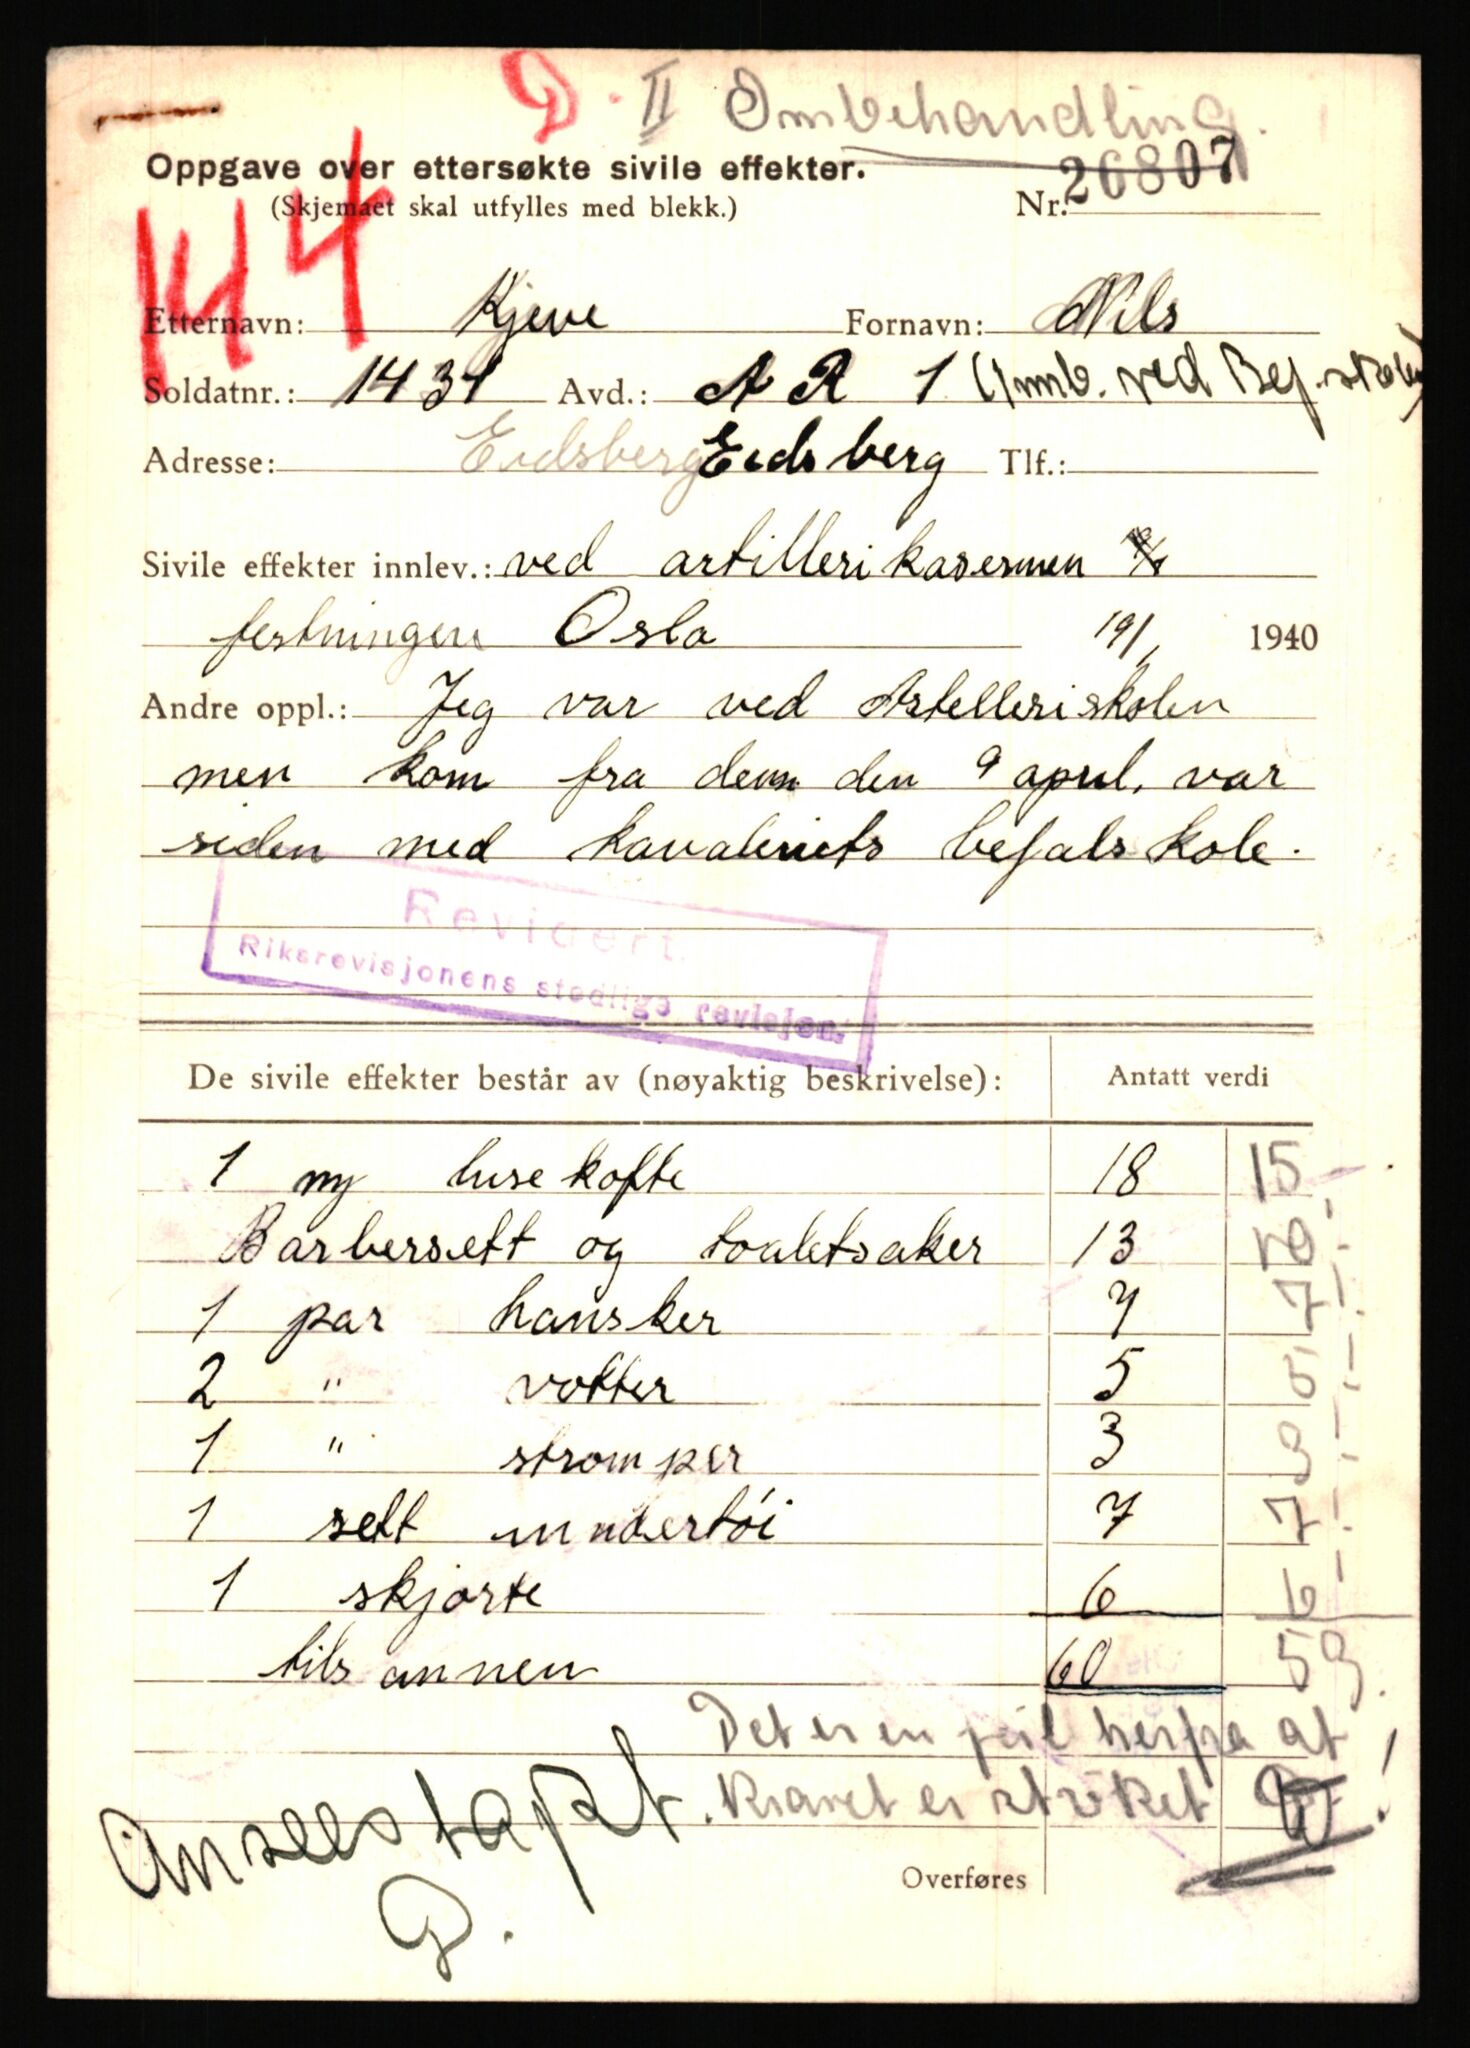 D. II Ombehandling.
Oppgave over ettersøkte sivile effekter.
(Skjemaet skal utfylles med blekk.)
Nr. 26807
H4
Etternavn: Kjeve Fornavn: Nils
Soldatnr.: 1431 Avd.: A R 1 (Innb. ved Bef.skolen)
Adresse: Eidsberg Eidsberg Tlf.:
Sivile effekter innlev.: ved artillerikasernen
festningen Oslo 19/1 1940
Andre oppl.: Jeg var ved Artelleriskolen
men kom fra dem den 9 april. var
siden med kavaleriets befalskole.
Revidert.
Riksrevisjonens stedlige revisjon.
De sivile effekter består av (nøyaktig beskrivelse): Antatt verdi
1 ny lusekofte 18 15 -
Barbersett og toaletsaker 13 10 -
1 par hansker 7 7 -
2 " votter 5 5 -
1 " strømper 3 3 -
1 sett undertöi 7 7 -
1 skjorte 6 6 -
tilsammen 60 53.
Det er en feil herfra at
kravet er strøket !
Ansees tapt.
D.
Overføres